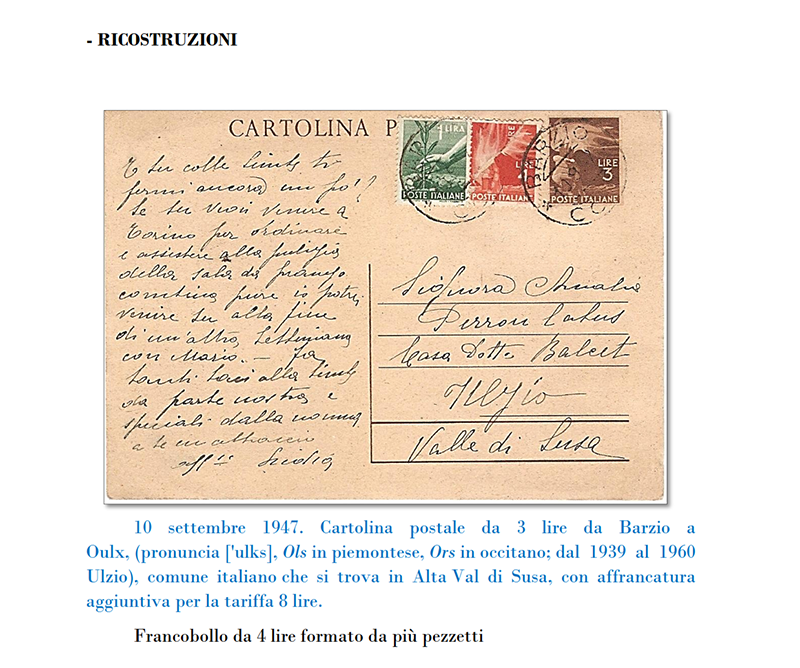 - RICOSTRUZIONI
CARTOLINA P
1 LIRA
POSTE ITALIANE
LIRE
POSTE ITALIANE
LIRE
3
POSTE ITALIANE
BARZIO
E tu colle bimbe ti
fermi ancora un po'?
Se tu vuoi venire a
Torino per ordinare
e assistere alla pulizia
della sala da pranzo
combina pure io potrei
venire su alla fine
di un'altra settimana
con Mario. - Fa
tanti baci alla bimba
da parte nostra e
speciali dalla nonna
a te un abbraccio
aff
Signora Amalia
Perron
Casa Dott. Balcet
Ulzio
Valle di Susa
10 settembre 1947. Cartolina postale da 3 lire da Barzio a
Oulx, (pronuncia ['ulks], Ols in piemontese, Ors in occitano; dal 1939 al 1960
Ulzio), comune italiano che si trova in Alta Val di Susa, con affrancatura
aggiuntiva per la tariffa 8 lire.
Francobollo da 4 lire formato da più pezzetti